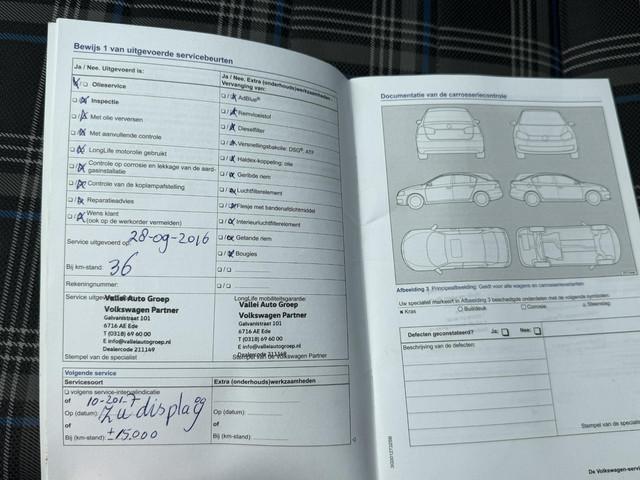 Bewijs 1 van uitgevoerde servicebeurten
Ja / Nee. Uitgevoerd is:
Olieservice
Inspectie
Met olie verversen
Met aanvullende controle
LongLife motorolie gebruikt
Controle op corrosie en lekkage van de aard-
gasinstallatie
Controle van de koplampafstelling
Reparatieadvies
Wens klant
(ook op de werkorder vermelden)
Service uitgevoerd op: 28-09-2016
Bij km-stand: 36
Rekeningnummer:
Ja / Nee. Extra (onderhouds)werkzaamheden
Vervanging van:
AdBlue®
Remvloeistof
Dieselfilter
Versnellingsbakolie: DSG®, ATF
Haldex-koppeling: olie
Geribde riem
Luchtfilterelement
Flesje met bandenafdichtmiddel
Interieurluchtfilterelement
Getande riem
Bougies
Vallei Auto Groep
Volkswagen Partner
Galvanistraat 101
6716 AE Ede
T (0318) 69 60 00
E info@valleiautogroep.nl
Dealercode 211149
Stempel van de specialist
LongLife mobiliteitsgarantie
Vallei Auto Groep
Volkswagen Partner
Galvanistraat 101
6716 AE Ede
T (0318) 69 60 00
E info@valleiautogroep.nl
Dealercode 211149
Stempel van de Volkswagen Partner
Volgende service
Servicesoort
Extra (onderhouds)werkzaamheden
volgens service-intervalindicatie
of
Op (datum):
of
Bij (km-stand): ±15.000
Op (datum):
of
Bij (km-stand):
Documentatie van de carrosseriecontrole
Afbeelding 3 Principeafbeelding: Geldt voor alle wagens en carrosserievarianten
Uw specialist markeert in Afbeelding 3 beschadigde onderdelen met de volgende symbolen:
Kras
Buil/deuk
Corrosie
Steenslag
Defecten geconstateerd?
Ja:
Nee:
Beschrijving van de defecten:
Stempel van de special
De Volkswagen-servic